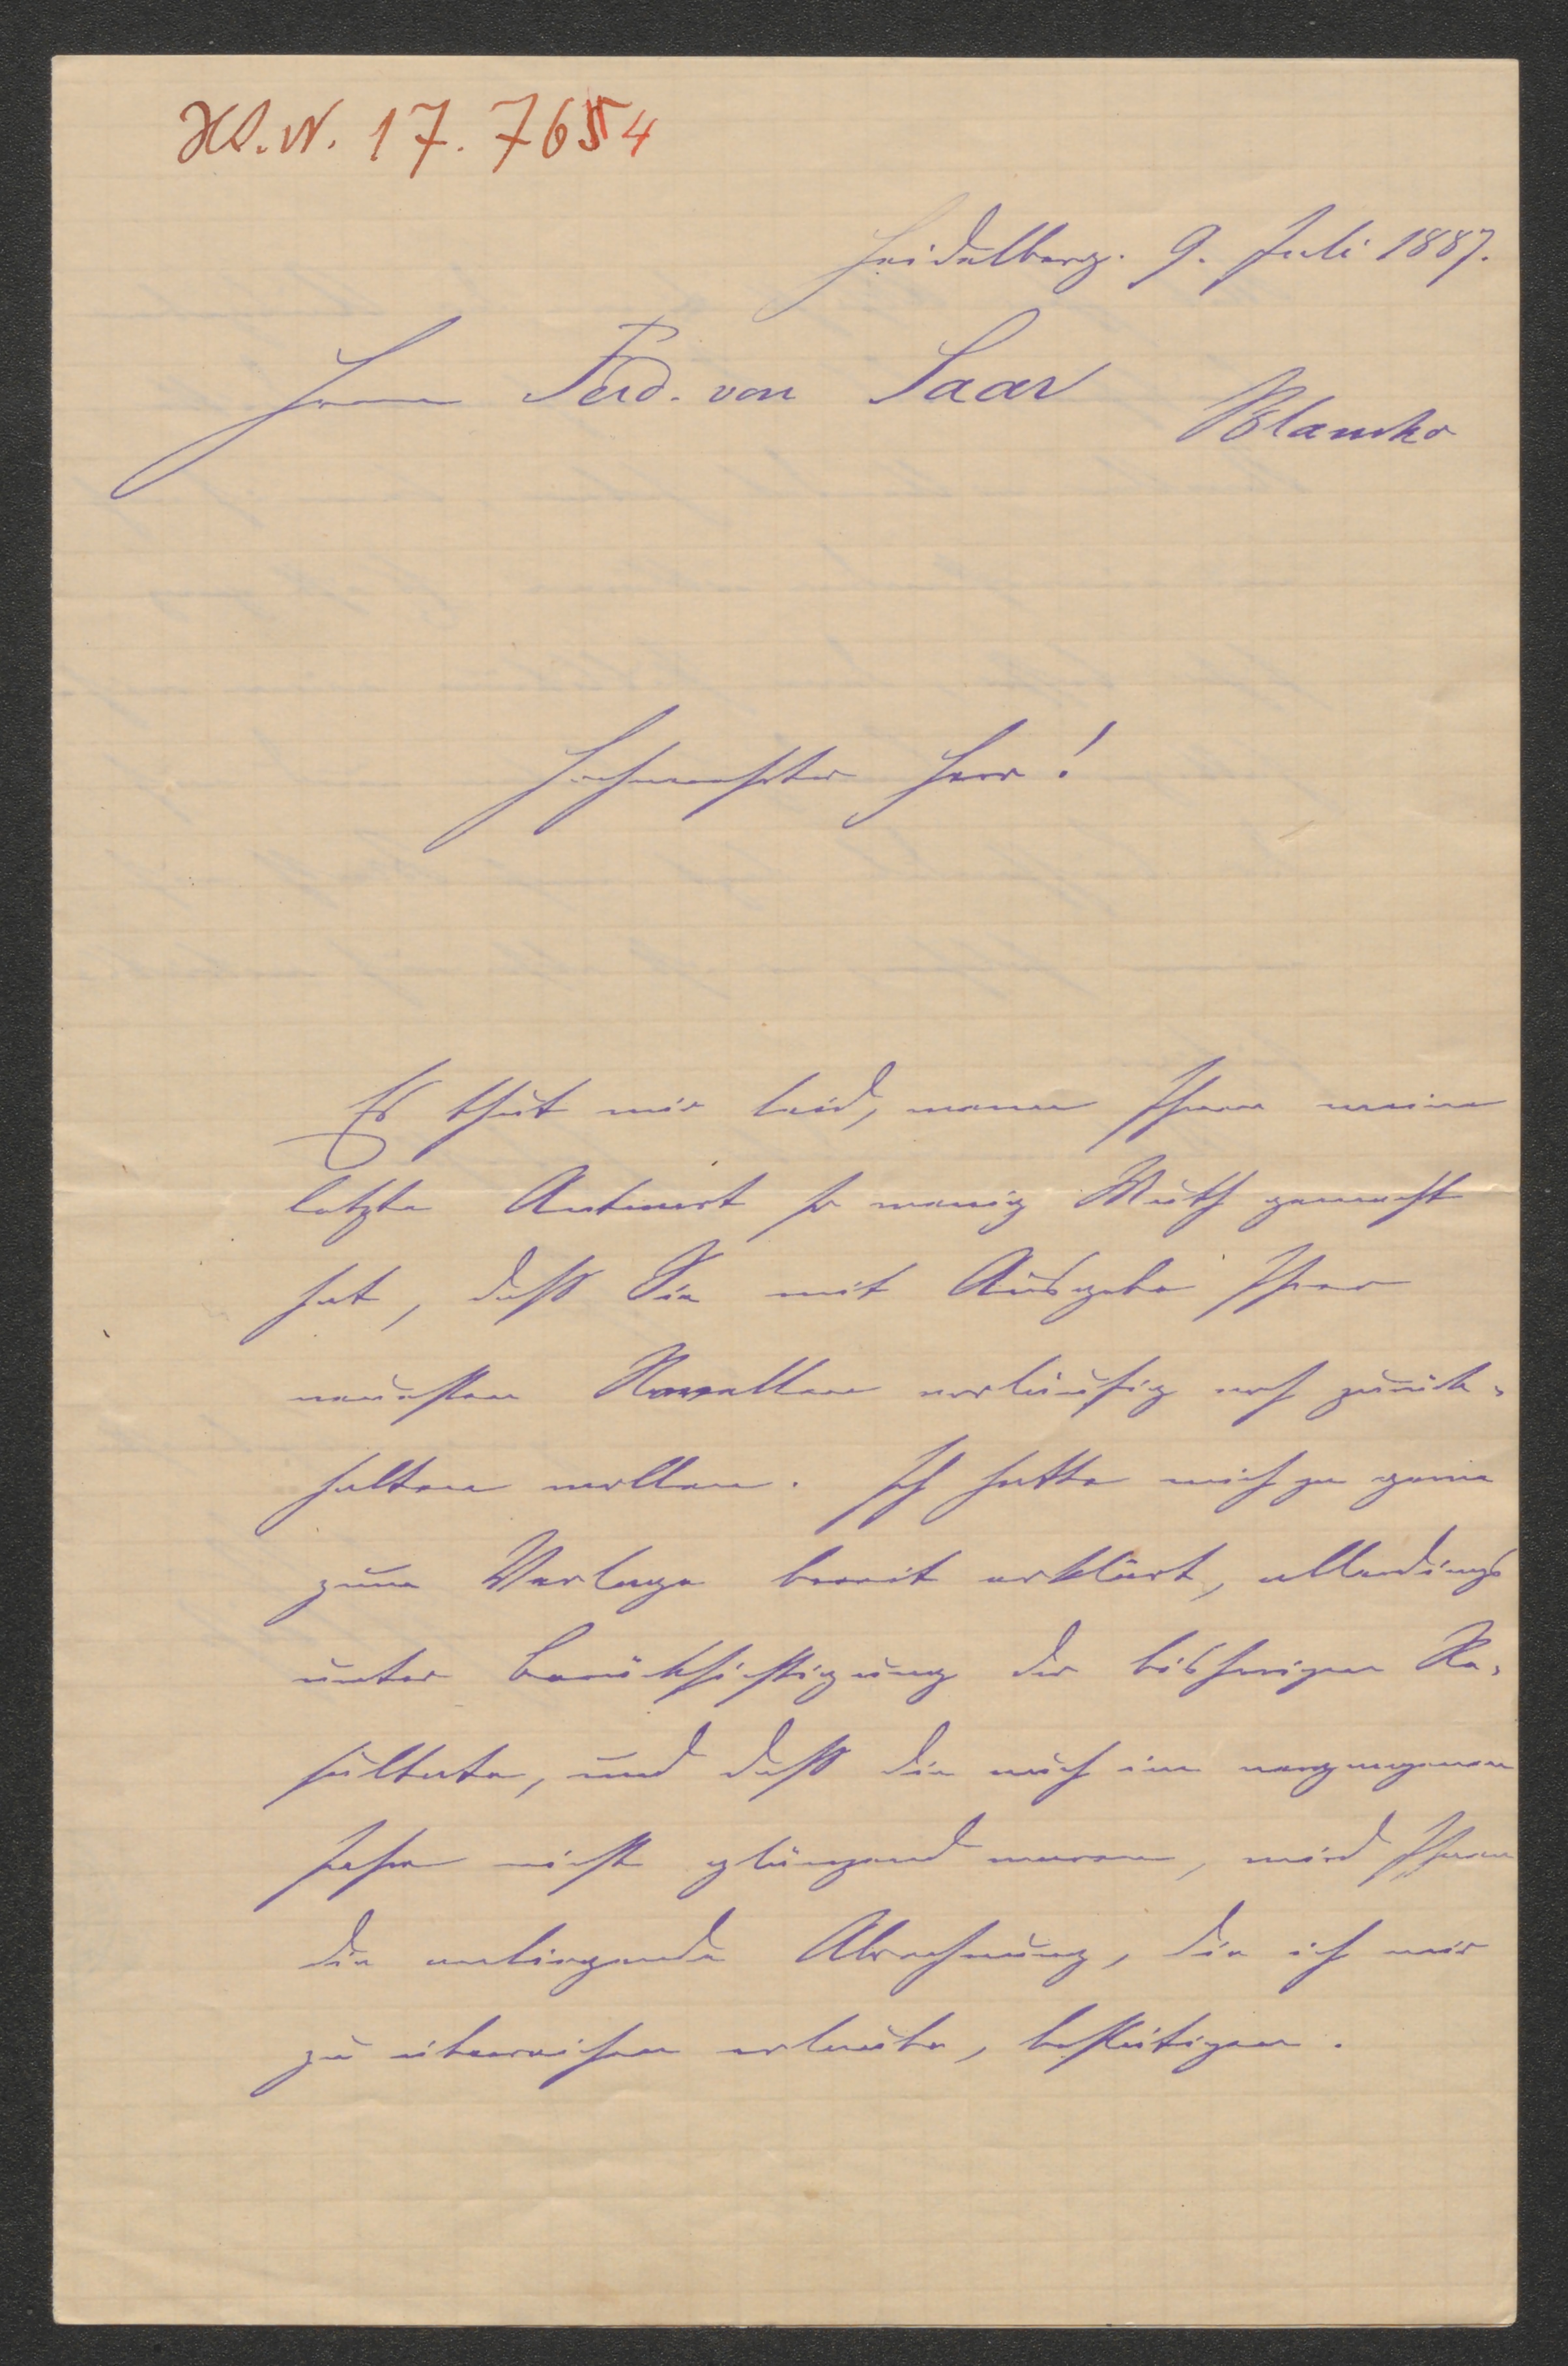 H.I.N. 17.7654
Heidelberg. 9. Juli 1887.
Herrn Ferd. von Saar
Blansko
Hochverehrter Herr!
Es thut mir leid, wenn Ihnen meine
letzte Antwort so wenig Muth gemacht
hat, daß Sie mit Ausgabe Ihrer
neuesten Novellen vorläufig noch zurück-
halten wollen. Ich hatte mich ja gerne
zum Verlage bereit erklärt, allerdings
unter Berücksichtigung der bisherigen Re-
sultate, und daß die auch im vergangenen
Jahre nicht glänzend waren, wird Ihnen
die anliegende Abrechnung, die ich mir
zu überreichen erlaube, bestätigen.